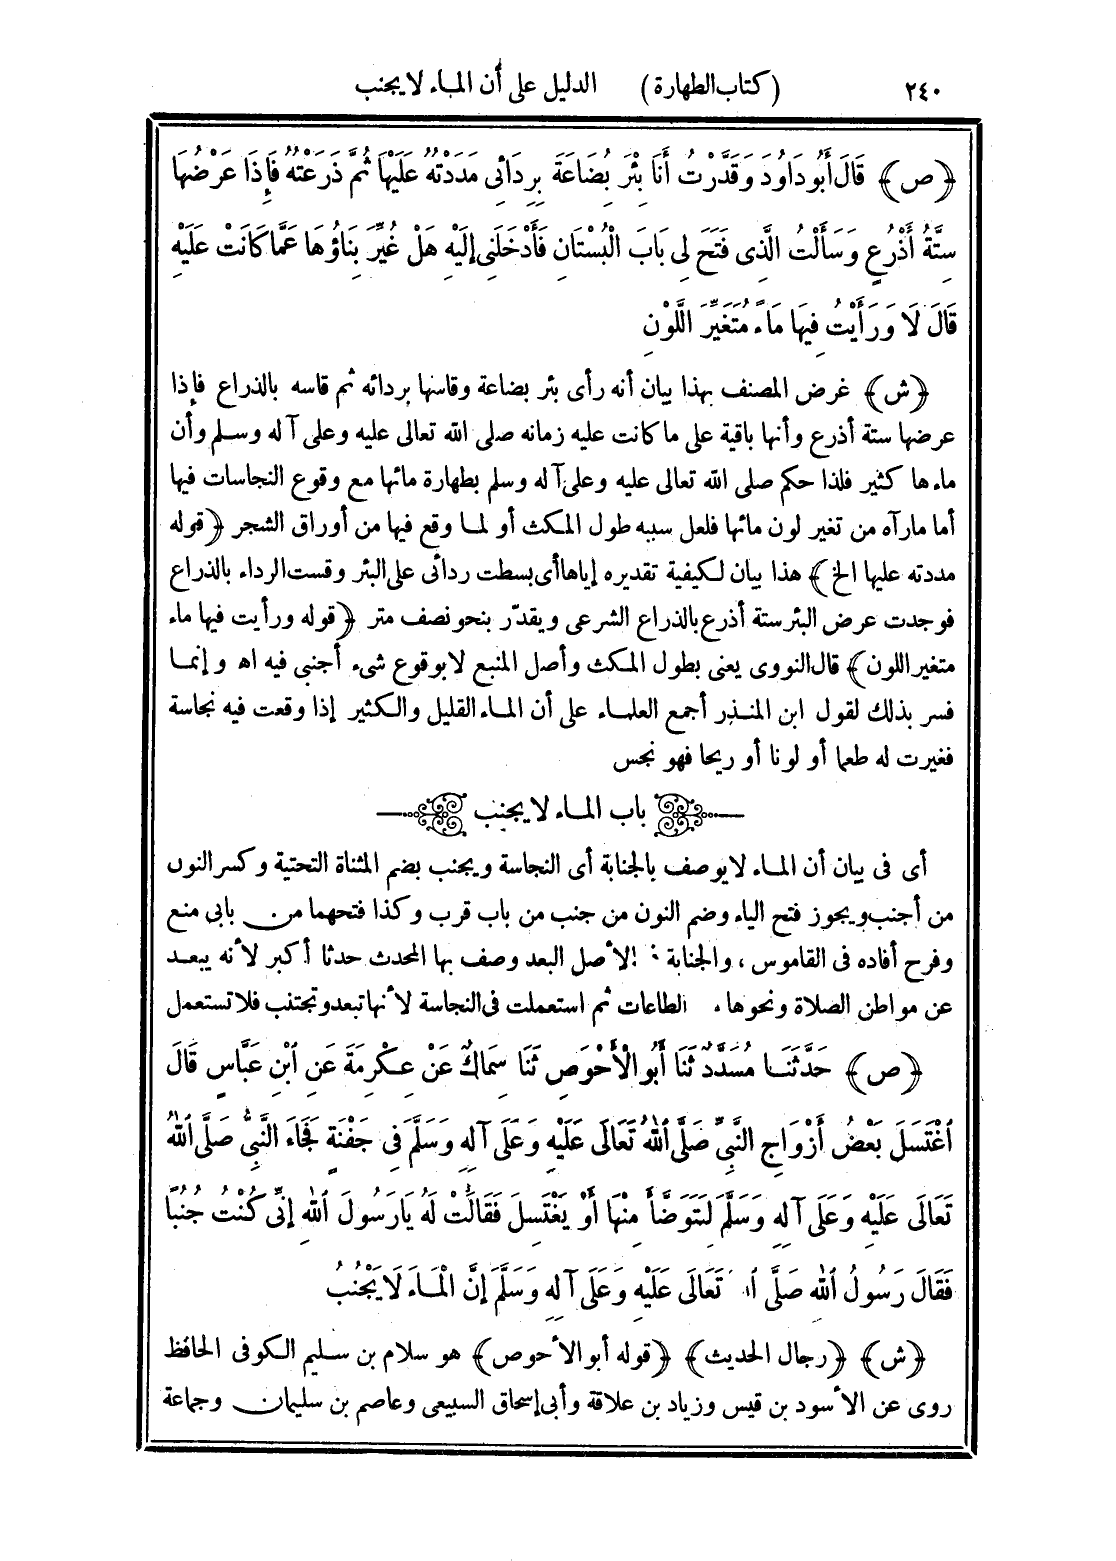 ٢٤٠ (كتاب الطهارة) الدليل على أن الماء لا يجنب
﴿ص﴾ قَالَ أَبُو دَاوُدَ وَقَدَّرْتُ أَنَا بِئْرَ بُضَاعَةَ بِرِدَائِى مَدَدْتُهُ عَلَيْهَا ثُمَّ ذَرَعْتُهُ فَإِذَا عَرْضُهَا
سِتَّةُ أَذْرُعٍ وَسَأَلْتُ الَّذِى فَتَحَ لِى بَابَ الْبُسْتَانِ فَأَدْخَلَنِى إِلَيْهِ هَلْ غُيِّرَ بِنَاؤُهَا عَمَّا كَانَتْ عَلَيْهِ
قَالَ لَا وَرَأَيْتُ فِيهَا مَاءً مُتَغَيِّرَ اللَّوْنِ
﴿ش﴾ غرض المصنف بهذا بيان أنه رأى بئر بضاعة وقاسها بردائه ثم قاسه بالذراع فإذا
عرضها ستة أذرع وأنها باقية على ما كانت عليه زمانه صلى الله تعالى عليه وعلى آله وسلم وأن
ماءها كثير فلذا حكم صلى الله تعالى عليه وعلى آله وسلم بطهارة مائها مع وقوع النجاسات فيها
أما مارآه من تغير لون مائها فلعل سببه طول المكث أو لما وقع فيها من أوراق الشجر ﴿قوله
مددته عليها الخ﴾ هذا بيان لكيفية تقديره إياها أى بسطت ردائى على البئر وقست الرداء بالذراع
فوجدت عرض البئر ستة أذرع بالذراع الشرعى ويقدّر بنحو نصف متر ﴿قوله ورأيت فيها ماء
متغير اللون﴾ قال النووى يعنى بطول المكث وأصل المنبع لا بوقوع شىء أجنبى فيه اه وإنما
فسر بذلك لقول ابن المنذر أجمع العلماء على أن الماء القليل والكثير إذا وقعت فيه نجاسة
فغيرت له طعما أو لونا أو ريحا فهو نجس
باب الماء لا يجنب
أى فى بيان أن الماء لا يوصف بالجنابة أى النجاسة ويجنب بضم المثناة التحتية وكسر النون
من أجنب ويجوز فتح الياء وضم النون من جنب من باب قرب وكذا فتحهما من بابى منع
وفرح أفاده فى القاموس، والجنابة الأصل البعد وصف بها المحدث حدثا أكبر لأنه يبعد
عن مواطن الصلاة ونحوها الطاعات ثم استعملت فى النجاسة لأنها تبعد وتجتنب فلا تستعمل
﴿ص﴾ حَدَّثَنَا مُسَدَّدٌ ثَنَا أَبُو الْأَحْوَصِ ثَنَا سِمَاكٌ عَنْ عِكْرِمَةَ عَنِ ابْنِ عَبَّاسٍ قَالَ
اغْتَسَلَ بَعْضُ أَزْوَاجِ النَّبِىِّ صَلَّى اللهُ تَعَالَى عَلَيْهِ وَعَلَى آلِهِ وَسَلَّمَ فِى جَفْنَةٍ فَجَاءَ النَّبِىُّ صَلَّى اللهُ
تَعَالَى عَلَيْهِ وَعَلَى آلِهِ وَسَلَّمَ لِيَتَوَضَّأَ مِنْهَا أَوْ يَغْتَسِلَ فَقَالَتْ لَهُ يَا رَسُولَ اللهِ إِنِّى كُنْتُ جُنُبًا
فَقَالَ رَسُولُ اللهِ صَلَّى تَعَالَى عَلَيْهِ وَعَلَى آلِهِ وَسَلَّمَ إِنَّ الْمَاءَ لَا يَجْنُبُ
﴿ش﴾ ﴿رجال الحديث﴾ ﴿قوله أبو الأحوص﴾ هو سلام بن سليم الكوفى الحافظ
روى عن الأسود بن قيس وزياد بن علاقة وأبى إسحاق السبيعى وعاصم بن سليمان وجماعة